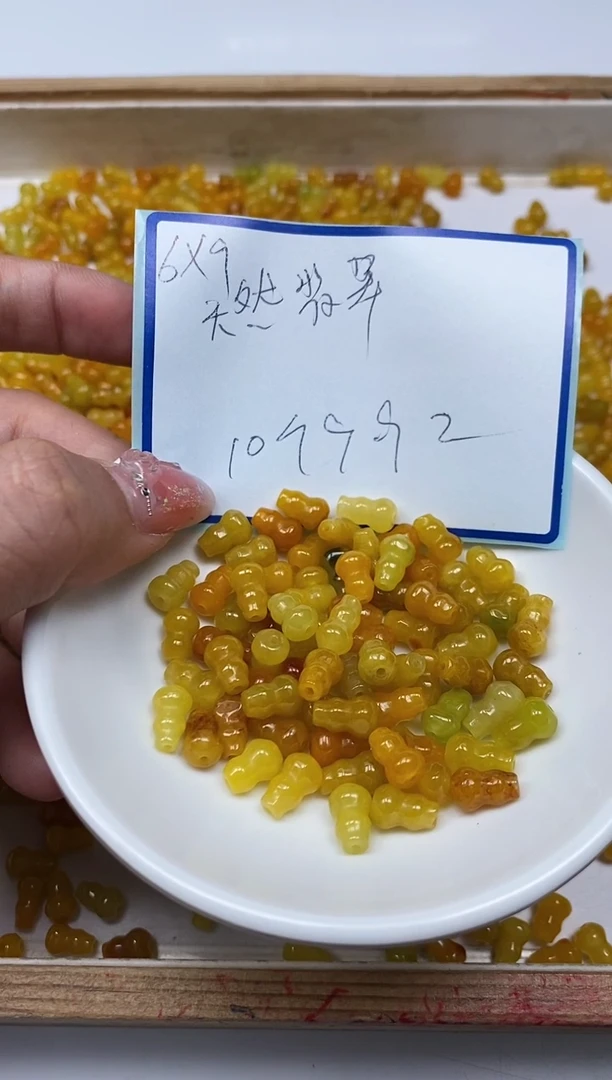 6X9
天然翡翠
109992